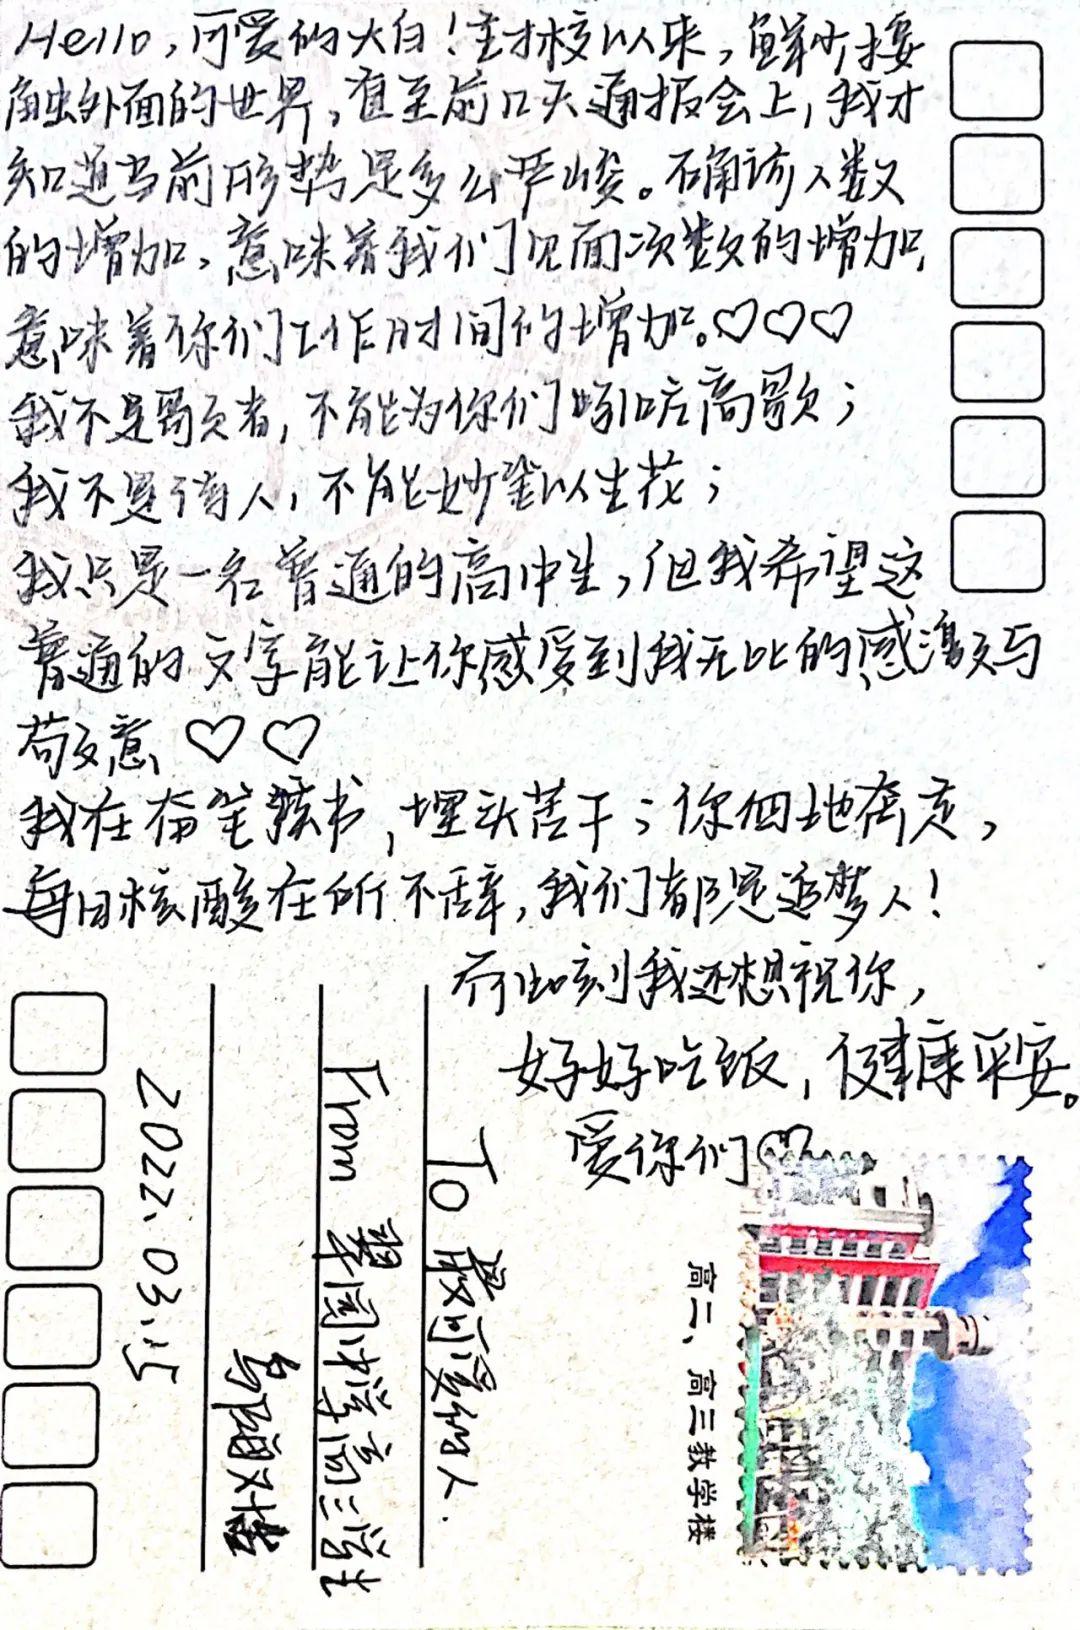 Hello,可爱的大白！住校以来，鲜少接
触外面的世界，直至前几天通报会上，我才
知道当前形势是多么严峻。确诊人数
的增加，意味着我们见面次数的增加，
意味着你们工作时间的增加。♡♡♡
我不是歌者，不能为你们引吭高歌；
我不是诗人，不能妙笔以生花；
我只是一名普通的高中生，但我希望这
普通的文字能让你感受到我无比的感激与
敬意 ♡♡
我在奋笔疾书，埋头苦干；你因地奔走，
每日核酸在所不辞，我们都是追梦人！
在此刻我还想祝你，
好好吃饭，健康平安。
爱你们♡
To 最可爱的人.
From 翠园中学高三学生
2022.03.15
高二、高三教学楼